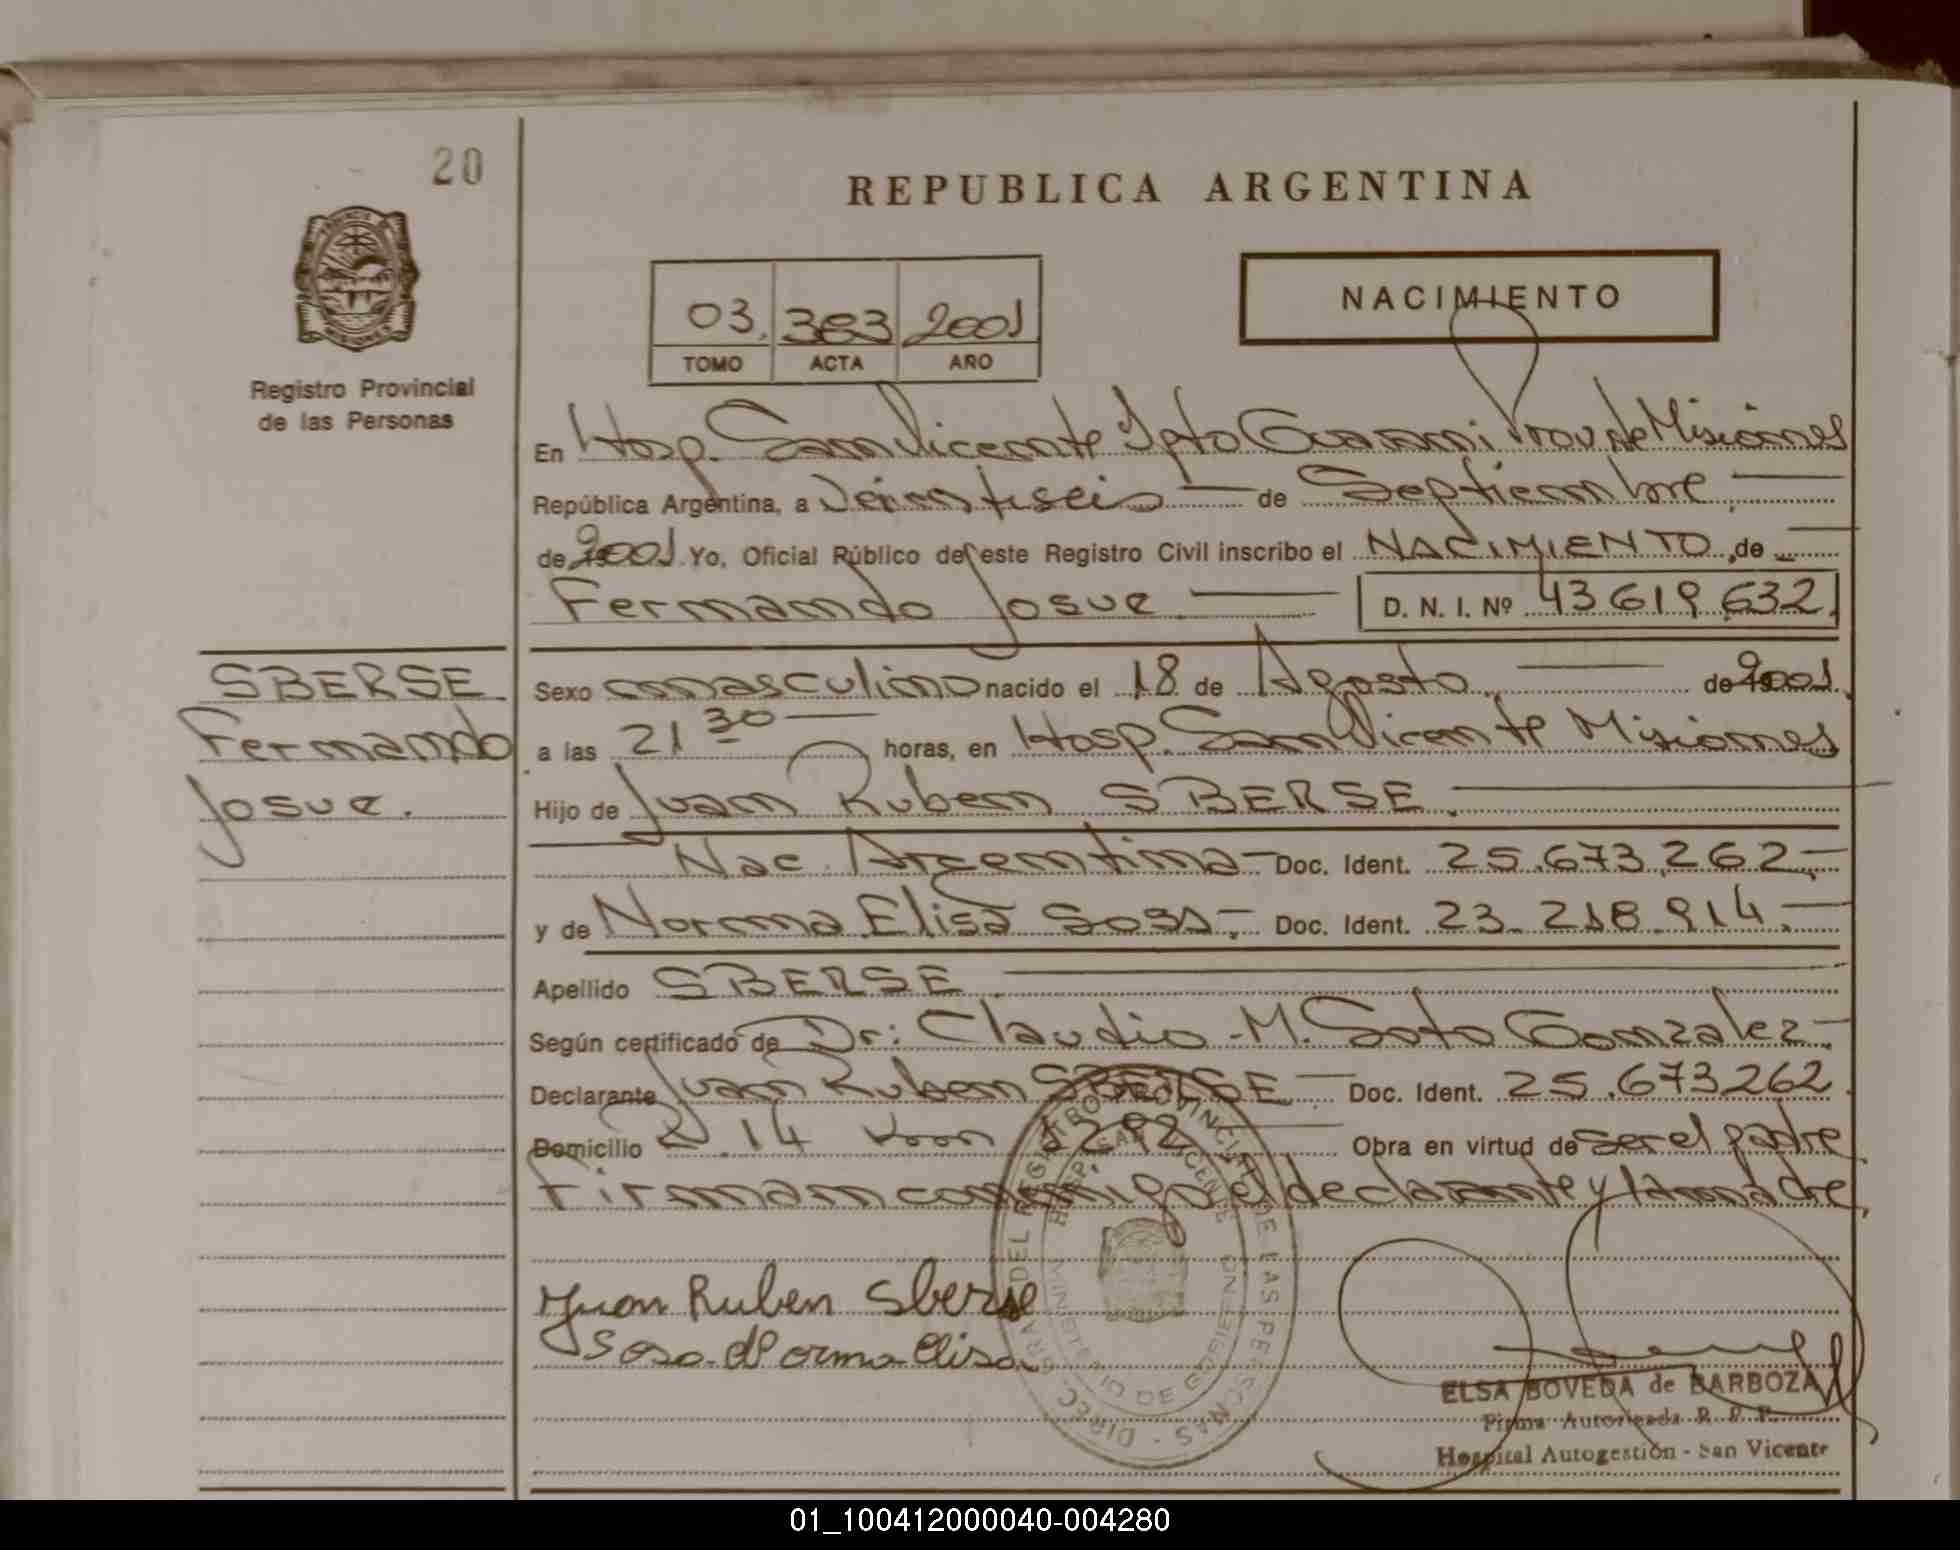 20
REPUBLICA ARGENTINA
NACIMIENTO
03. 383 2001
TOMO ACTA AÑO
Registro Provincial
de las Personas
En Hosp. San Vicente Dpto Guarani Prov. de Misiones
República Argentina, a Veintiseis de Septiembre
de 2001 Yo, Oficial Público de este Registro Civil inscribo el NACIMIENTO, de
Fernando Josue D. N. I. Nº 43619632
SBERSE
Fernando
Josue.
Sexo masculino nacido el 18 de Agosto de 2001
a las 21 30 horas, en Hosp. San Vicente Misiones
Hijo de Juan Ruben SBERSE
Nac. Argentina Doc. Ident. 25.673.262
y de Norma Elisa Sosa Doc. Ident. 23.218.914
Apellido SBERSE
Según certificado de Dr: Claudio M. Soto Gonzalez
Declarante Juan Ruben SBERSE Doc. Ident. 25.673262
Domicilio R 14 Km 1292 Obra en virtud de ser el padre
Firman conmigo el declarante y la madre
Juan Ruben Sberse
Sosa Norma Elisa
DIREC. GRAL DEL REGISTRO PROVINCIAL DE LAS PERSONAS
HOSP. SAN VICENTE
MINISTERIO DE GOBIERNO
ELSA BOVEDA de BARBOZA
Firma Autorizada R. P. P.
Hospital Autogestión - San Vicente
01_100412000040-004280